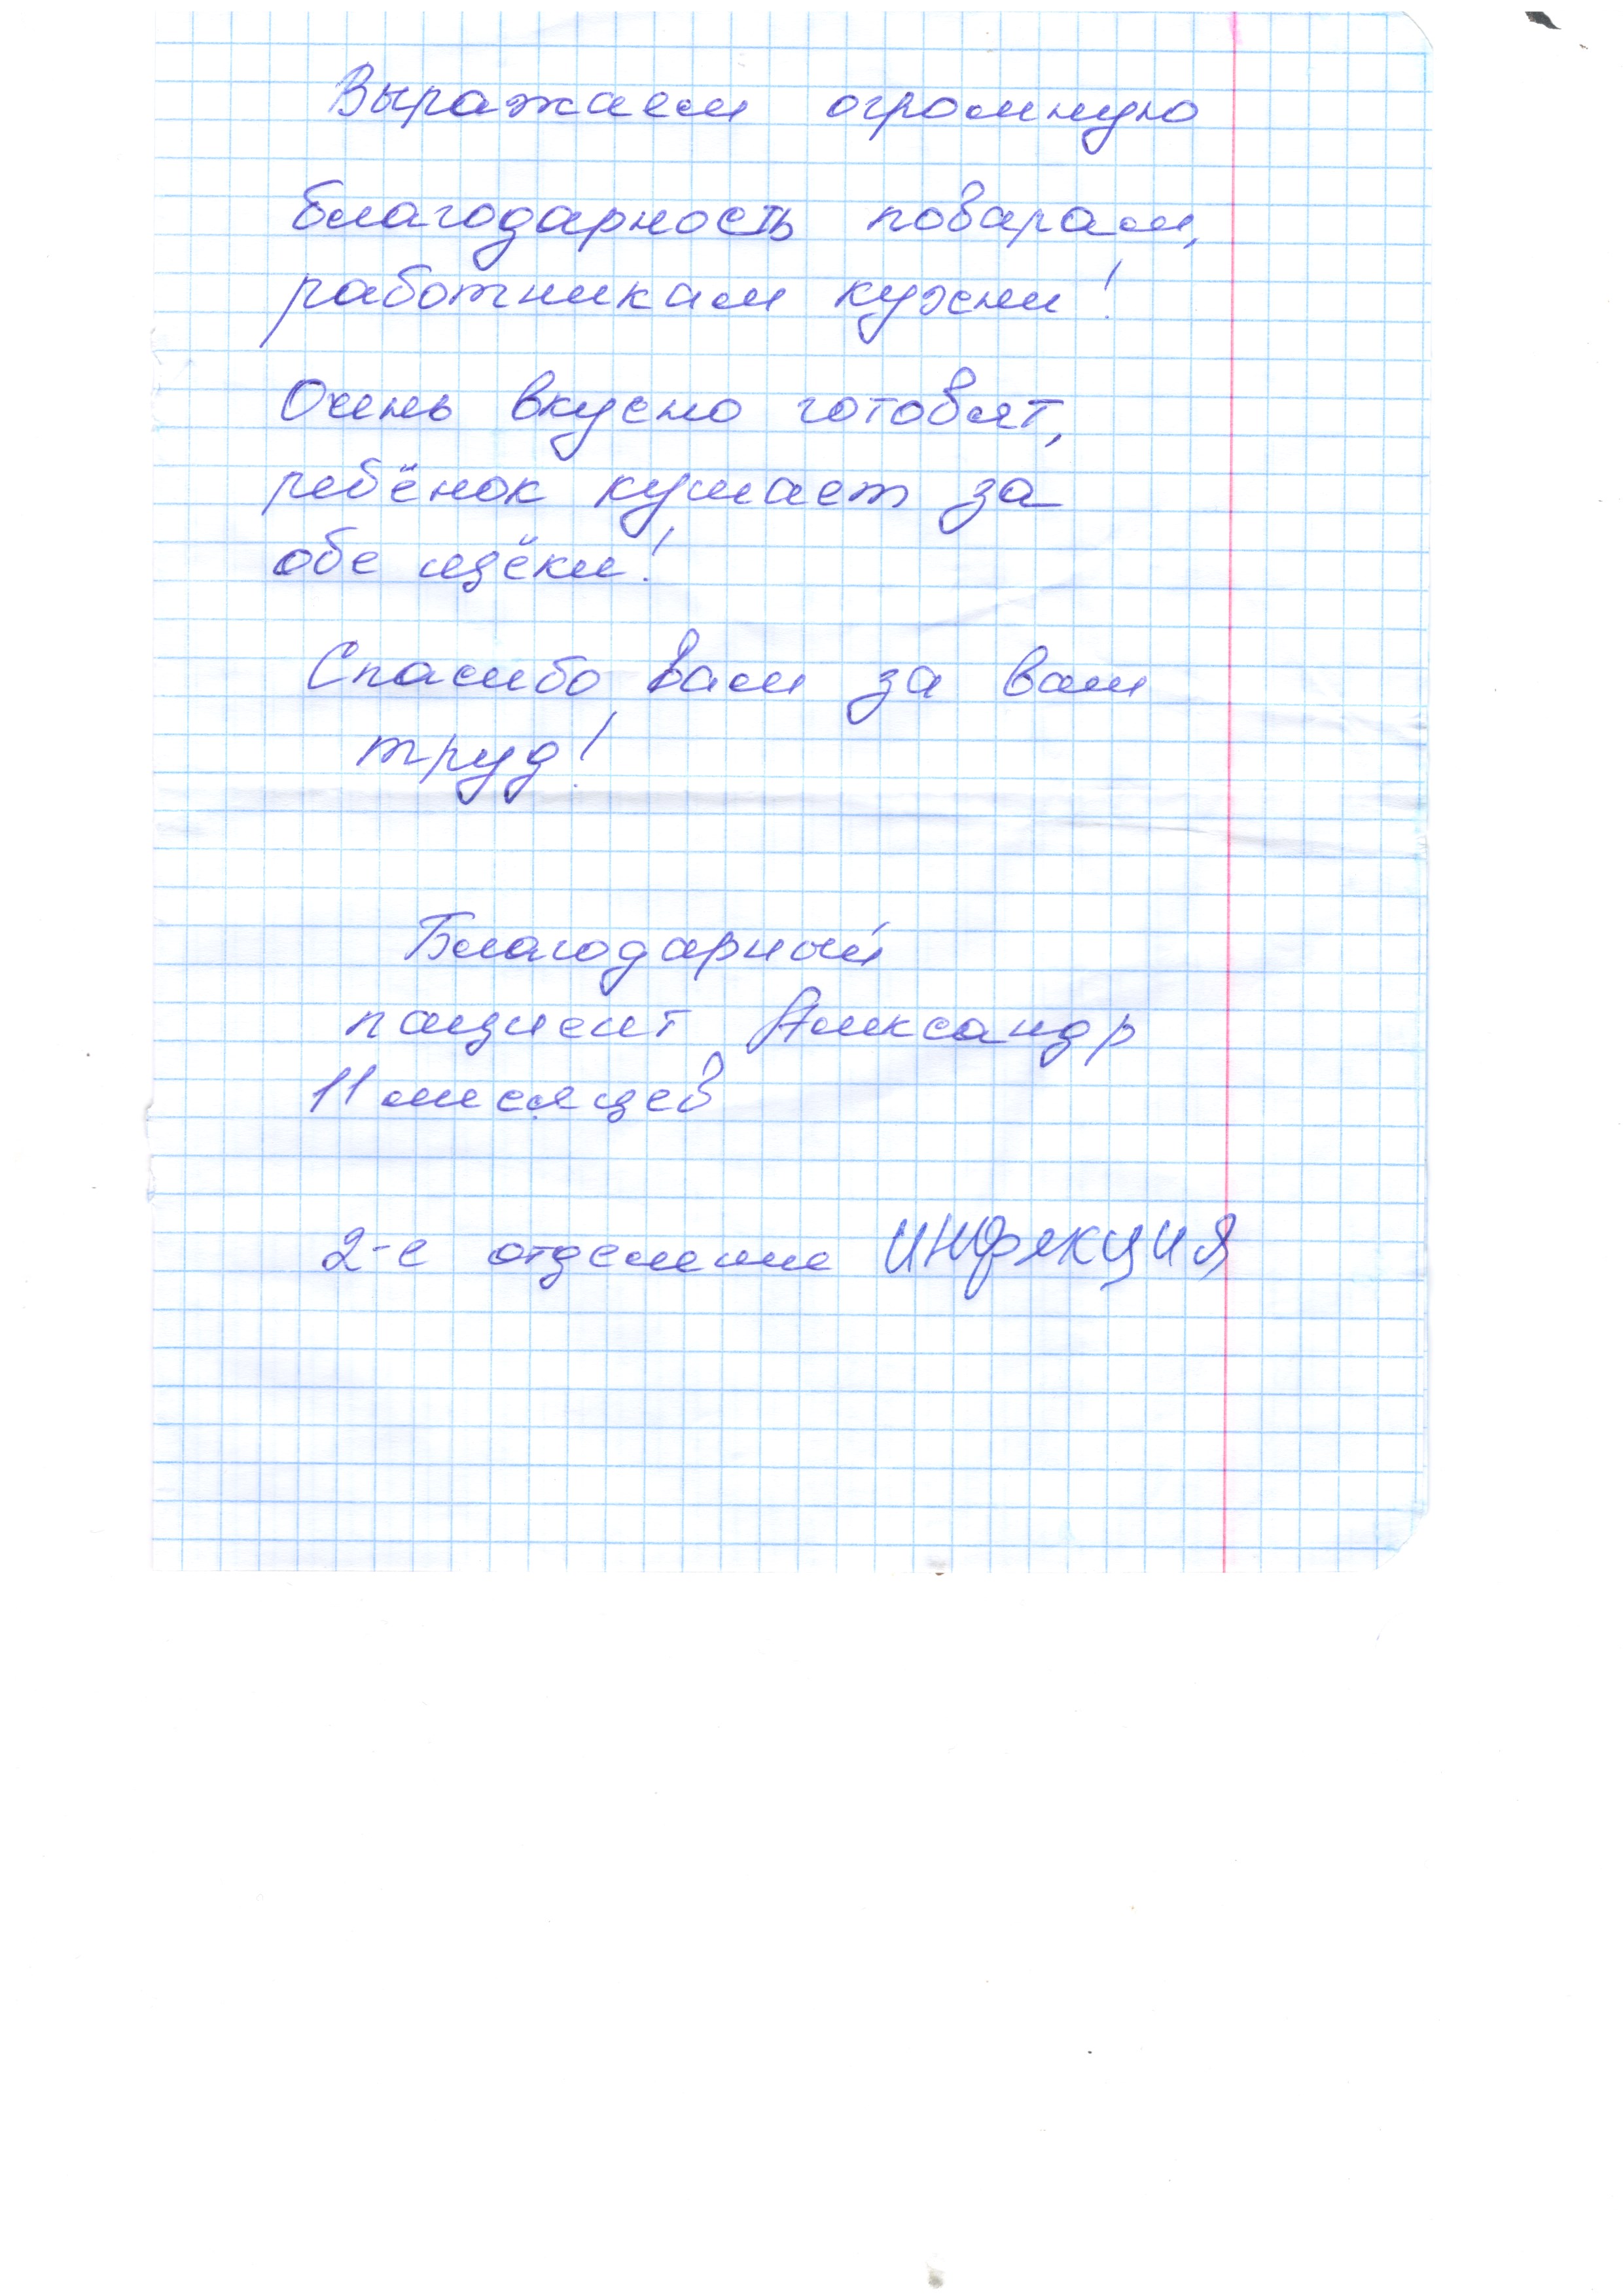 Выражаем огромную
благодарность поварам,
работникам кухни!
Очень вкусно готовят,
ребёнок кушает за
обе щёки!
Спасибо вам за ваш
труд!
Благодарный
пациент Александр
11 месяцев
2-е отделение инфекция